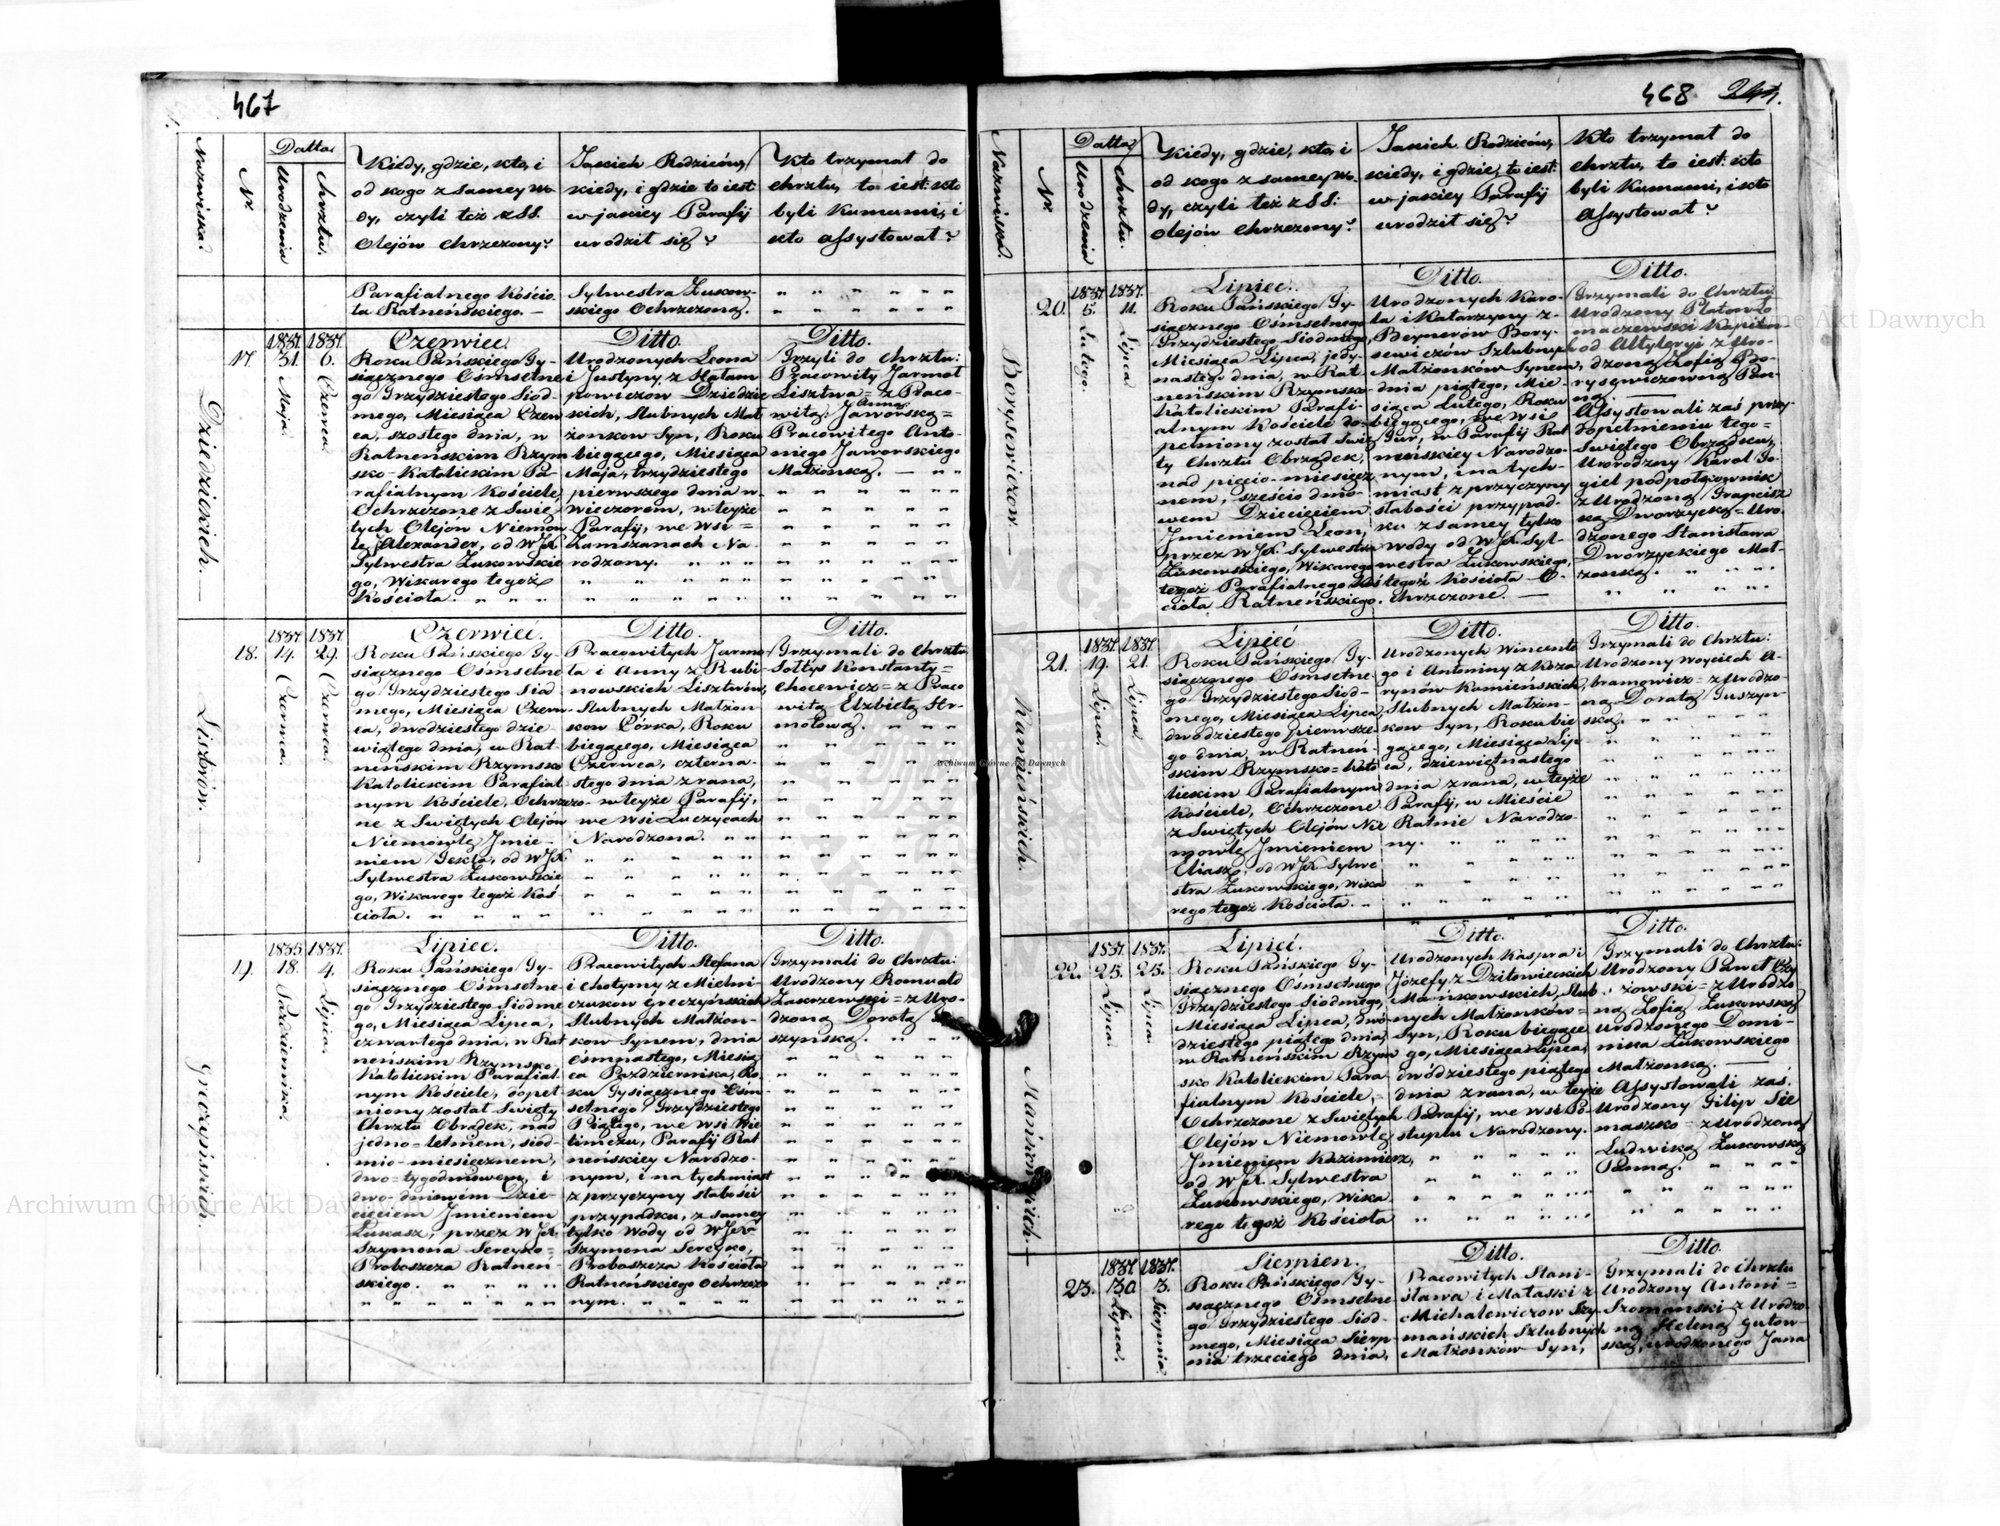 467
Nazwiska.
Nr.
Datta
Urodzenia
Chrztu.
Kiedy, gdzie, kto, i
od kogo z samey wo
dy, czyli też z SS.
Olejów chrzczony?
Jakich Rodziców,
kiedy, i gdzie to iest
w jakiey Parafij
urodził się?
Kto trzymał do
chrztu, to iest: kto
byli Kumami, i
kto assystował?
Parafialnego Kościo
ła Ratneńskiego. —
Sylwestra Żukow-
skiego Ochrzczona.
Dziedzickich
17.
1837.
31.
Maja.
1837.
6.
Czerwca.
Czerwiec.
Roku Pańskiego Ty-
siącznego Ośmsetne
go Trzydziestego Siod-
mego, Miesiąca Czerw
ca, szostego dnia, w
Ratneńskim Rzym
sko-Katolickim Pa-
rafialnym Kościele,
Ochrzczone z Swię
tych Olejów Niemow
le, Alexander, od WJX
Sylwestra Żukowskie
go, Wikarego tegoż
Kościoła.
Ditto.
Urodzonych Leona
i Justyny z Hatam
powiczow Dziedzic
kich, Slubnych Mał
żonkow Syn, Roku
biegącego, Miesiąca
Maja, trzydziestego
pierwszego dnia w
wieczorem, w teyże
Parafij, we Wsi =
Zamszanach Na-
rodzony.
Ditto.
Trzyli do chrztu:
Pracowity Jarmoł
Lisztwa = z Praco-
witą Anną Jaworską =
Pracowitego Anto-
niego Jaworskiego
Małżonką.
Lisztwów.
18.
1837.
14.
Czerwca.
1837.
29.
Czerwca.
Czerwiec.
Roku Pańskiego Ty-
siącznego Ośmsetne
go Trzydziestego Siod
mego, Miesiąca Czerw
ca, dwudziestego dzie
wiątego dnia, w Rat
neńskim Rzymsko
Katolickim Parafial
nym Kościele, Ochrzczo
ne z Swiętych Olejów
Niemowlę Jmie-
niem Tekla, od WJX
Sylwestra Żukowskie
go, Wikarego tegoż Koś
cioła.
Ditto.
Pracowitych Jarmo
ła i Anny z Rubi
nowskich Lisztwów,
Slubnych Małżon
kow Córka, Roku
biegącego, Miesiąca
Czerwca, czterna-
stego dnia z rana,
w teyże Parafij,
we Wsi Luczycach
Narodzona.
Ditto.
Trzymali do Chrztu
Sołtys Konstanty =
Chocewicz = z Praco
witą Elżbietą Hr-
mołową.
Greczyńskich.
19.
1835
18.
Pazdziernika
1837.
4.
Lipca.
Lipiec.
Roku Pańskiego Ty-
siącznego Ośmsetne
go Trzydziestego Siodme
go, Miesiąca Lipca,
czwartego dnia, w Rat
neńskim Rzymsko
Katolickim Parafial
nym Kościele, dopeł
niony został Swięty
Chrztu Obrądek, nad
jedno-letniem, siod-
mio-miesięcznem,
dwo-tygodniowem, i
dwo-dniowem Dzie-
cięciem Jmieniem
Łukasz, przez WJX.
Szymona Sereyko =
Proboszcza Ratnen-
skiego.
Ditto.
Pracowitych Stefana
i Chotymy z Mielni
czukow Greczyńskich
Slubnych Małżon-
kow Synem, dnia
Osmnastego, Miesią
ca Pazdziernika, Ro
ku Tysiącznego Ośm
setnego Trzydziestego
Piątego, we Wsi Wie
limczu, Parafij Rat
neńskiey Narodzo-
nym, i natychmiast
z przyczyny słabości
przypadku, z samey
tylko Wody od WJX
Szymona Sereyko,
Proboszcza Kościoła
Ratneńskiego Ochrzczo
nym.
Ditto.
Trzymali do Chrztu:
Urodzony Romuald
Zakrzewski = z Uro-
dzoną Dorotą
szyńską.
468
Nazwiska.
Nr.
Datta
Urodzenia
Chrztu.
Kiedy, gdzie, kto, i
od kogo z samey wo-
dy, czyli też z SS:
Olejów chrzczony?
Jakich Rodziców,
kiedy, i gdzie, to iest:
w jakiey Parafij
urodził się?
Kto trzymał do
chrztu, to iest: kto
byli Kumami, i kto
Assystował?
Borysewiczow
20.
1837.
5.
Lutego.
1837.
11.
Lipca
Lipiec.
Roku Pańskiego Ty-
siącznego Ośmsetnego
Trzydziestego Siodmego,
Miesiąca Lipca, jedy-
nastego dnia, w Rat
neńskim Rzymsko
Katolickim Parafi-
alnym Kościele do-
pełniony został Swię
ty Chrztu Obrządek,
nad pięcio-miesięcz
nem, sześcio dnio-
wem Dziecięciem
Jmieniem Leon,
przez WJX. Sylwestra
Żukowskiego, Wikarego
tegoż Parafialnego Koś
cioła Ratneńskiego.
Ditto.
Urodzonych Karo-
la i Katarzyny z
Beynerów Bory-
sewiczów Szlubnych
Małżonków Synem,
dnia piątego, Mie-
siąca Lutego, Roku
biegącego, we Wsi
Tur, w Parafij Rat
neńskiey Narodzo-
nym, i natych-
miast z przyczyny
słabości przypad-
ku z samey tylko
Wody od WJX. Syl-
westra Żukowskiego,
tegoż Kościoła O-
chrzczone. —
Ditto.
Trzymali do Chrztu:
Urodzony Platow
maczewski Kapitan
od Attyleryi z Uro-
dzoną Zofią Bo-
rysewiczowną Pan-
ną.
Assystowali zaś przy
dopełnieniu tego =
Swiętego Obrządku,
Urorodzony Karol Jo-
giel podpołkownik
z Urodzoną Franciszką
Dworzycką = Uro-
dzonego Stanisława
Dworzyckiego Mał-
żonką.
Kamieńskich.
21.
1837.
19.
Lipca.
1837.
21.
Lipca
Lipieć
Roku Pańskiego Ty-
siącznego Ośmsetne
go Trzydziestego Siod-
mego, Miesiąca Lipca,
dwódziestego pierwsze-
go dnia, w Ratneń-
skim Rzymsko-Kato
lickim Parafialnym
Kościele, Ochrzczone
z Swiętych Olejów Nie
mowlę Jmieniem
Eliasz, od WJX Sylwe
stra Żukowskiego, Wika
rego tegoż Kościoła. —
Ditto.
Urodzonych Wincente
go i Antoniny z Koza
rynów Kamieńskich,
Slubnych Małżon-
kow Syn, Roku bie
gącego, Miesiąca Lip-
ca, dziewiętnastego
dnia z rana, w teyże
Parafij, w Mieście
Ratnie Narodzo-
ny.
Ditto.
Trzymali do Chrztu:
Urodzony Woyciech A-
bramowicz = z Urodzo
ną Dorotą Juszyn-
ską.
22.
1837.
25.
Lipca.
1837.
25.
Lipca.
Lipieć.
Roku Pańskiego Ty-
siącznego Ośmsetnego
Trzydziestego Siodmego,
Miesiąca Lipca, dwó-
dziestego piątego dnia,
w Ratneńskim Rzym
sko Katolickim Para
fialnym Kościele, —
Ochrzczone z Swiętych
Olejów Niemowlę
Jmieniem Kazimierz,
od WJX. Sylwestra
Żukowskiego, Wika
rego tegoż Kościoła
Ditto.
Urodzonych Kaspra i
Józefy z Dziłowickich
Mańkowskich, Slub
nych Małżonków =
Syn, Roku biegące
go, Miesiąca Lipca,
dwódziestego piątego
dnia z rana, w teyże
Parafij, we Wsi Po-
stuplu Narodzony.
Ditto.
Trzymali do Chrztu:
Urodzony Paweł Czy
żowski = z Urodzo
ną Zofią Łukowską
Urodzonego Domi-
nika Łukowskiego
Małżonką.
Assystowali zaś,
Urodzony Filip Sie
maszko = z Urodzoną
Ludwiką Łukowską
Panną.
23.
1837.
30
Lipca.
1837.
3.
Sierpnia.
Sierpien.
Roku Pańskiego Ty-
siącznego Ośmsetne
go Trzydziestego Siod-
mego, Miesiąca Sierp-
nia trzeciego dnia,
Ditto.
Pracowitych Stani-
sława i Małaski z
Michalewiczow Szy-
mańskich Szlubnych
Małżonków Syn,
Ditto.
Trzymali do Chrztu
Urodzony Antoni =
Szomański z Urodzo
ną Heleną Gutow-
ską, urodzonego Jana
Archiwum Główne Akt Dawnych
Archiwum Główne Akt Dawnych